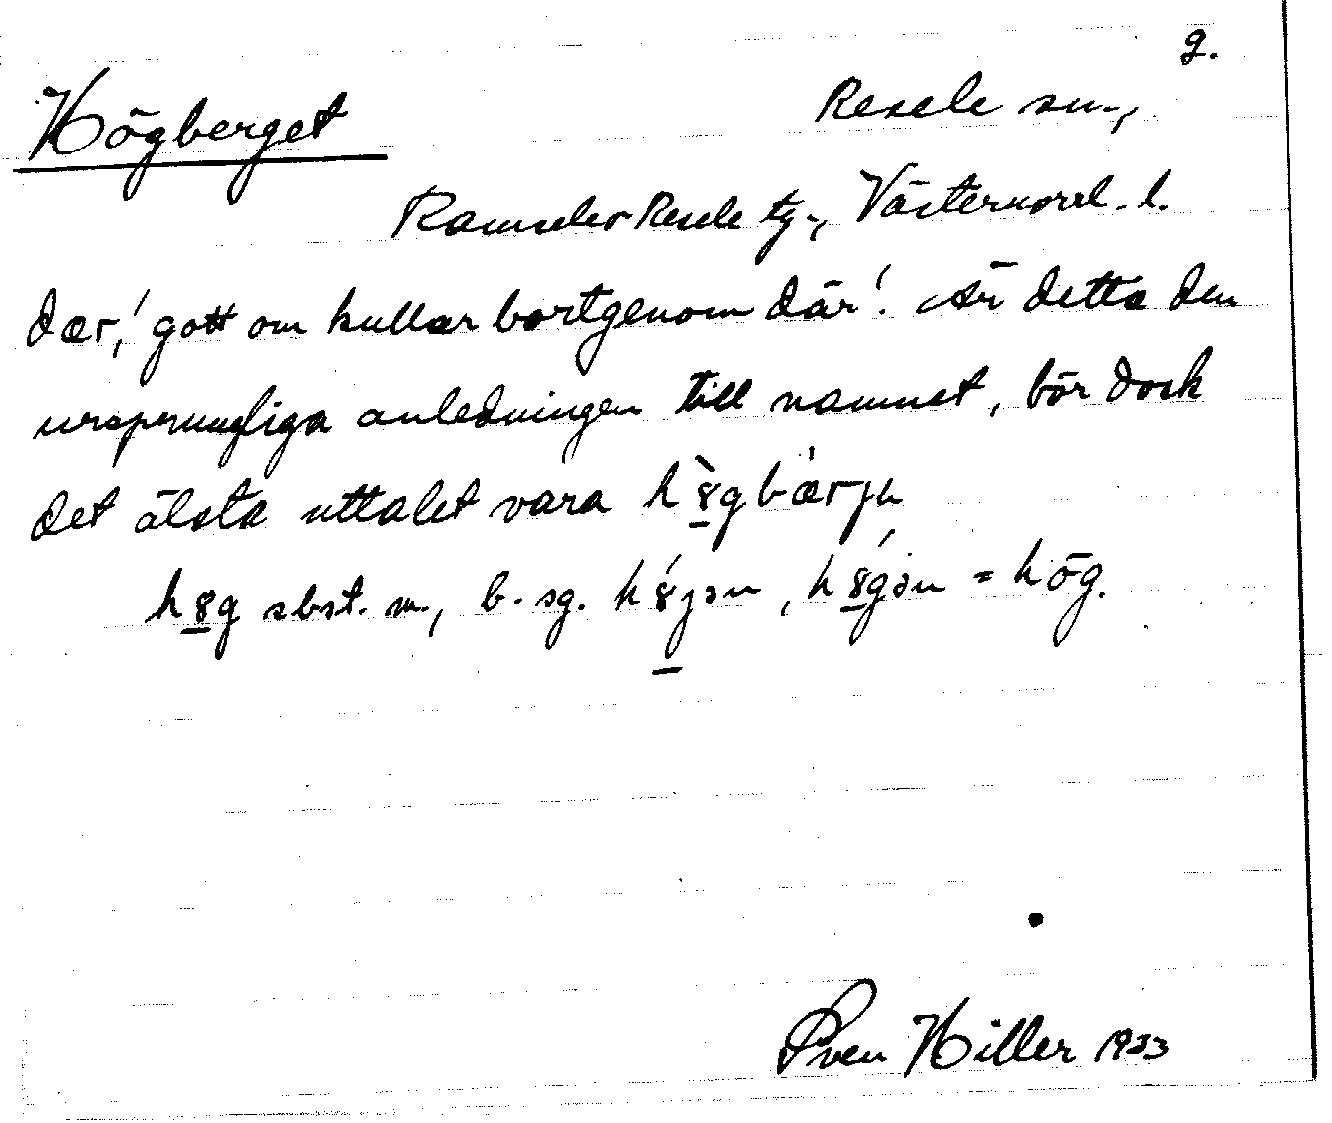 2.
Högberget
Resele sn.,
Ramsele-Resele tg., Västernorrl. l.
dær,' gott om kullar bortgenom där'. Är detta den
ursprungliga anledningen till namnet, bör dock
det älsta uttalet vara
sbst. m., b. sg. = hög.
Sven Hiller 1933